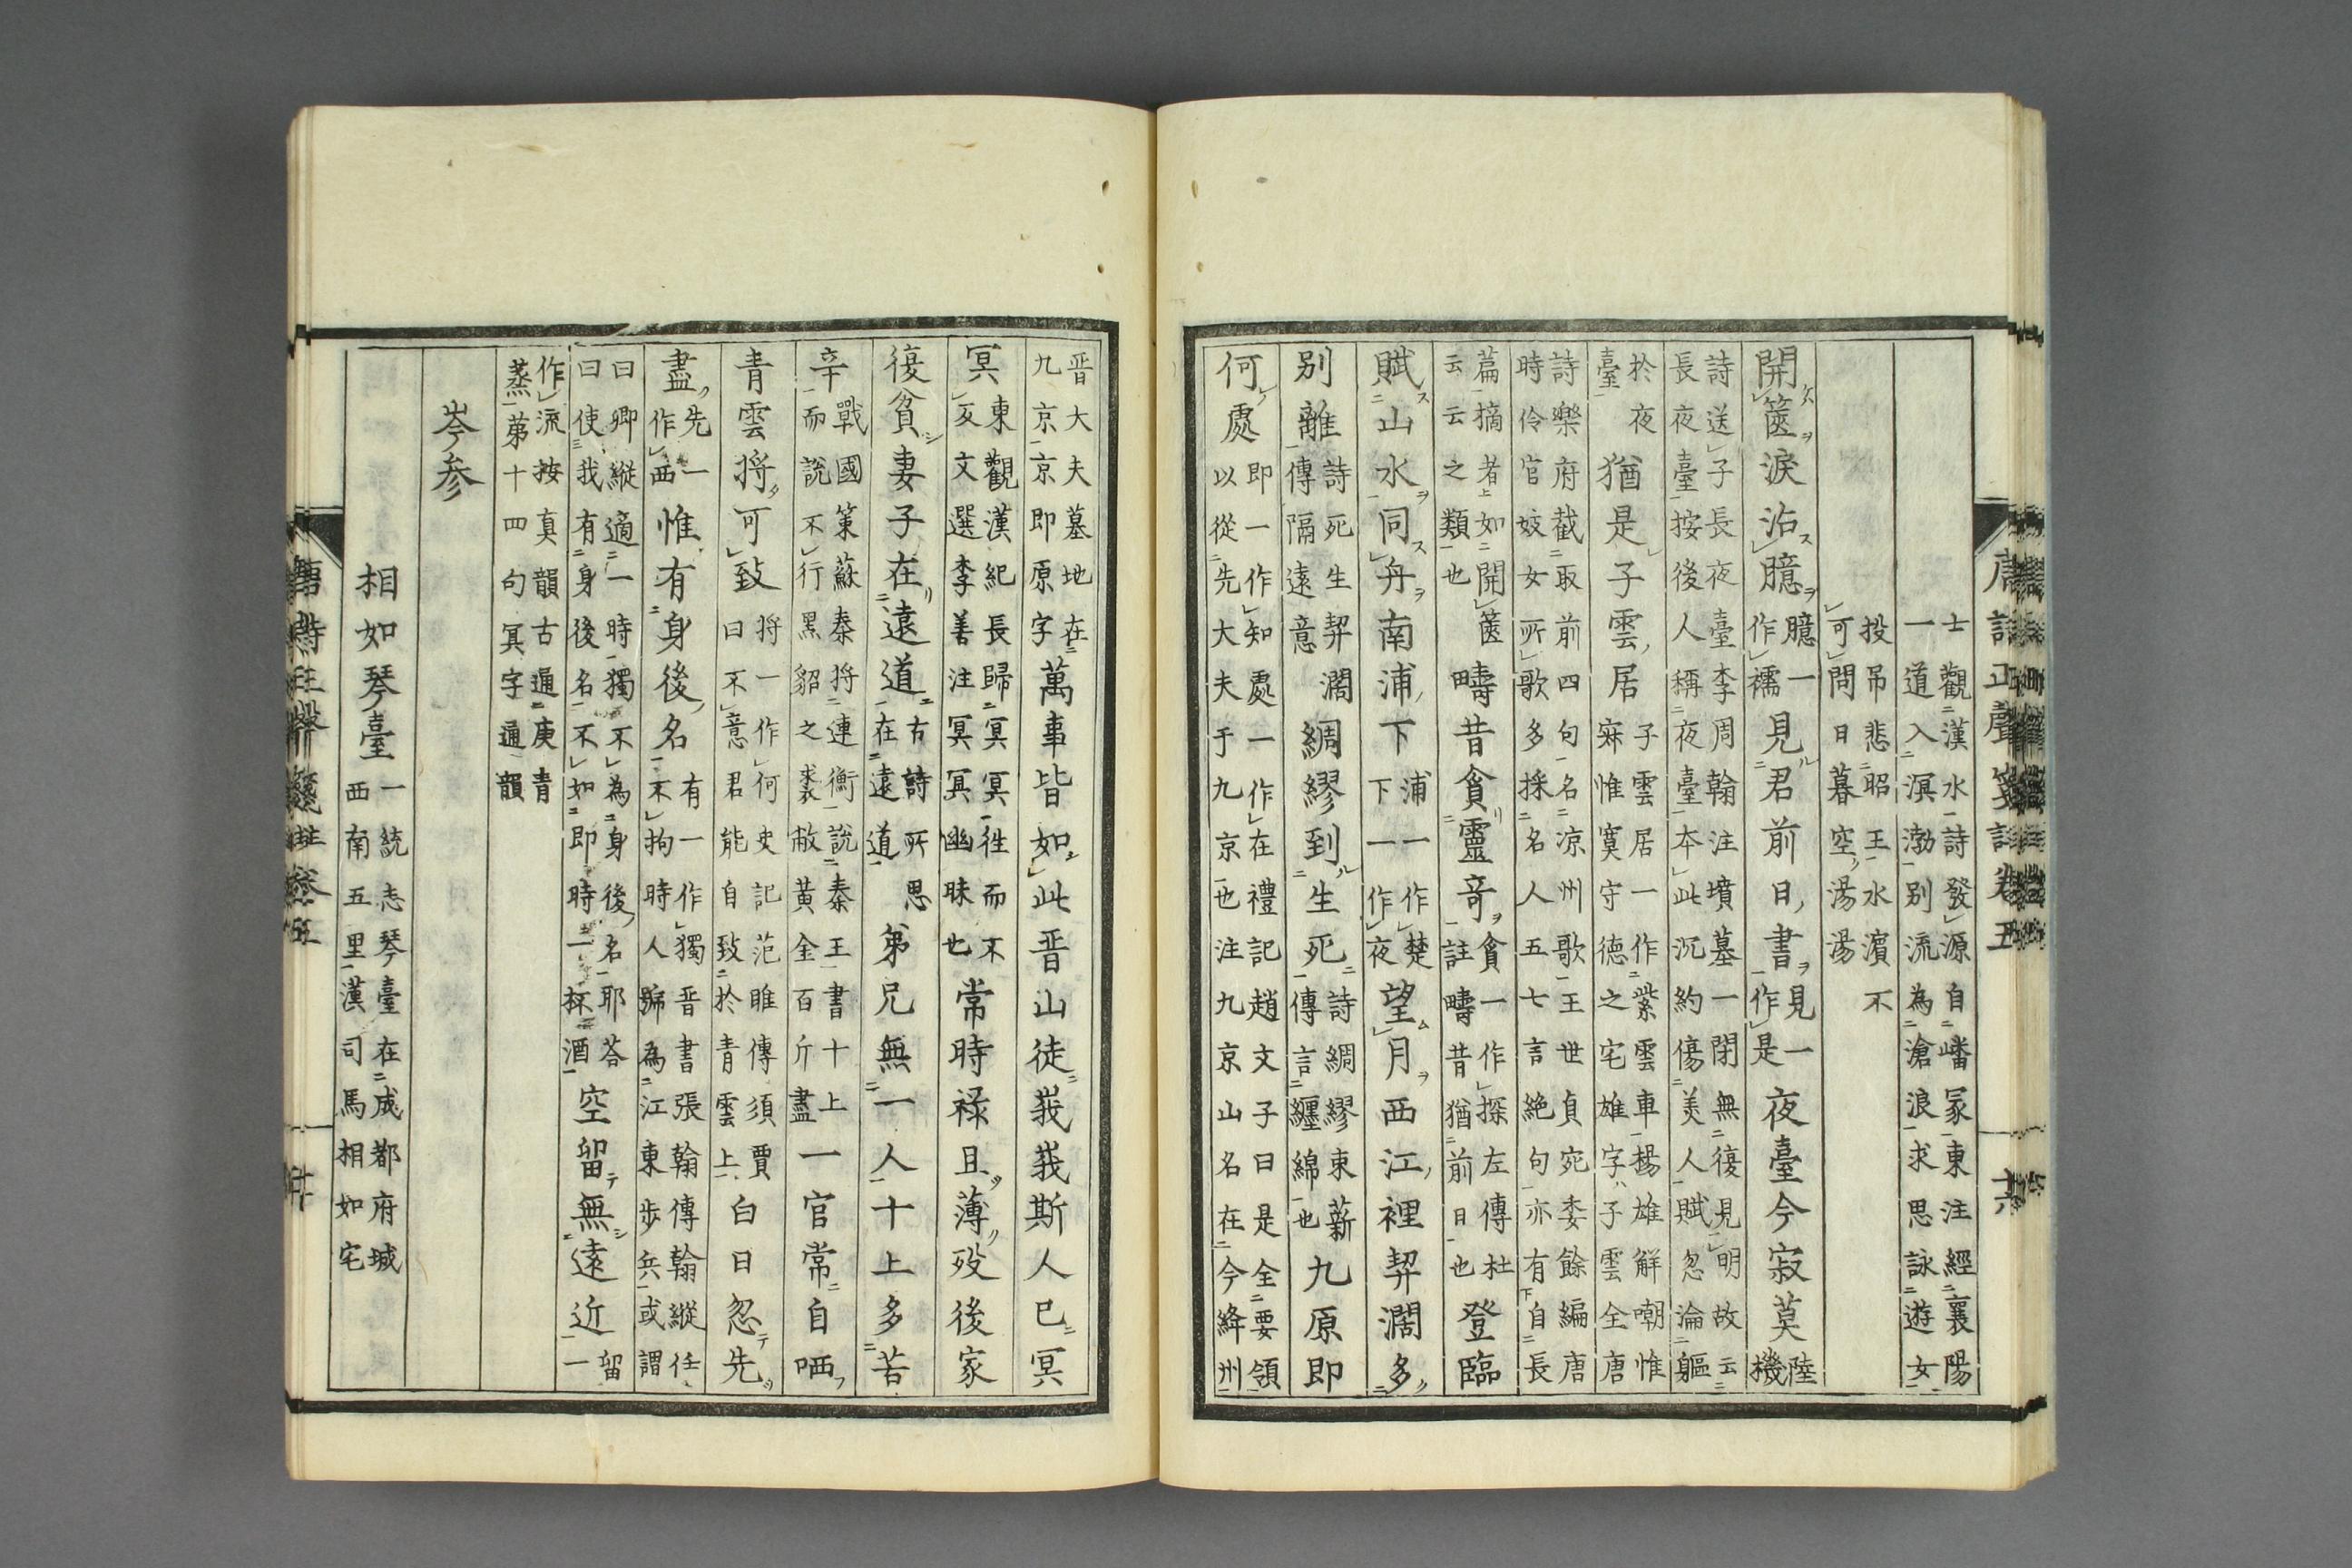 唐詩正聲箋註卷五　六
士觀漢水詩發源自嶓冢東注經襄陽
一道入溟渤别流為滄浪求思詠遊女
投吊悲昭王水濱不
可問日暮空湯湯
開篋淚沾臆臆一作襦見君前日書見一作是夜臺今寂莫陸機
詩送子長夜臺李周翰注墳墓一閉無復見明故云
長夜臺按後人稱夜臺本此沉約傷美人賦忽淪軀
於夜臺猶是子雲居子雲居一作紫雲車揚雄解嘲惟寂惟寞守德之宅雄字子雲全唐
詩樂府截取前四句名涼州歌王世貞宛委餘編唐
時伶官妓女所歌多採名人五七言絶句亦有自長
篇摘者如開篋云云之類也疇昔貪靈竒貪一作探左傳杜註疇昔猶前日也登臨
賦山水同舟南浦下浦一作楚下一作夜望月西江裡契濶多
别離詩死生契濶傳隔遠意綢繆到生死詩綢繆束薪傳言纏綿也九原即
何處即一作知處一作在禮記趙文子曰是全要領以從先大夫于九京也注九京山名在今絳州
晋大夫墓地在九京京即原字萬事皆如此晋山徒峩峩斯人已冥
冥東觀漢紀長歸冥冥徃而不反文選李善注冥冥幽昧也常時禄且薄殁後家
復貧妻子在遠道古詩所思在遠道弟兄無一人十上多苦
辛戰國策蘇秦將連衡說秦王書十上而說不行黑貂之裘敝黄金百斤盡一官常自哂
青雲将可致将一作何史記范睢傳須賈曰不意君能自致於青雲上白日忽先
盡先一作西惟有身後名有一作獨晋書張翰傳翰縱任不拘時人號為江東步兵或謂
曰卿縱適一時獨不為身後名耶荅曰使我有身後名不如即時一杯酒空留無遠近留一
作流按真韻古通庚青
蒸第十四句冥字通韻
岑参
相如琴臺一統志琴臺在成都府城西南五里漢司馬相如宅